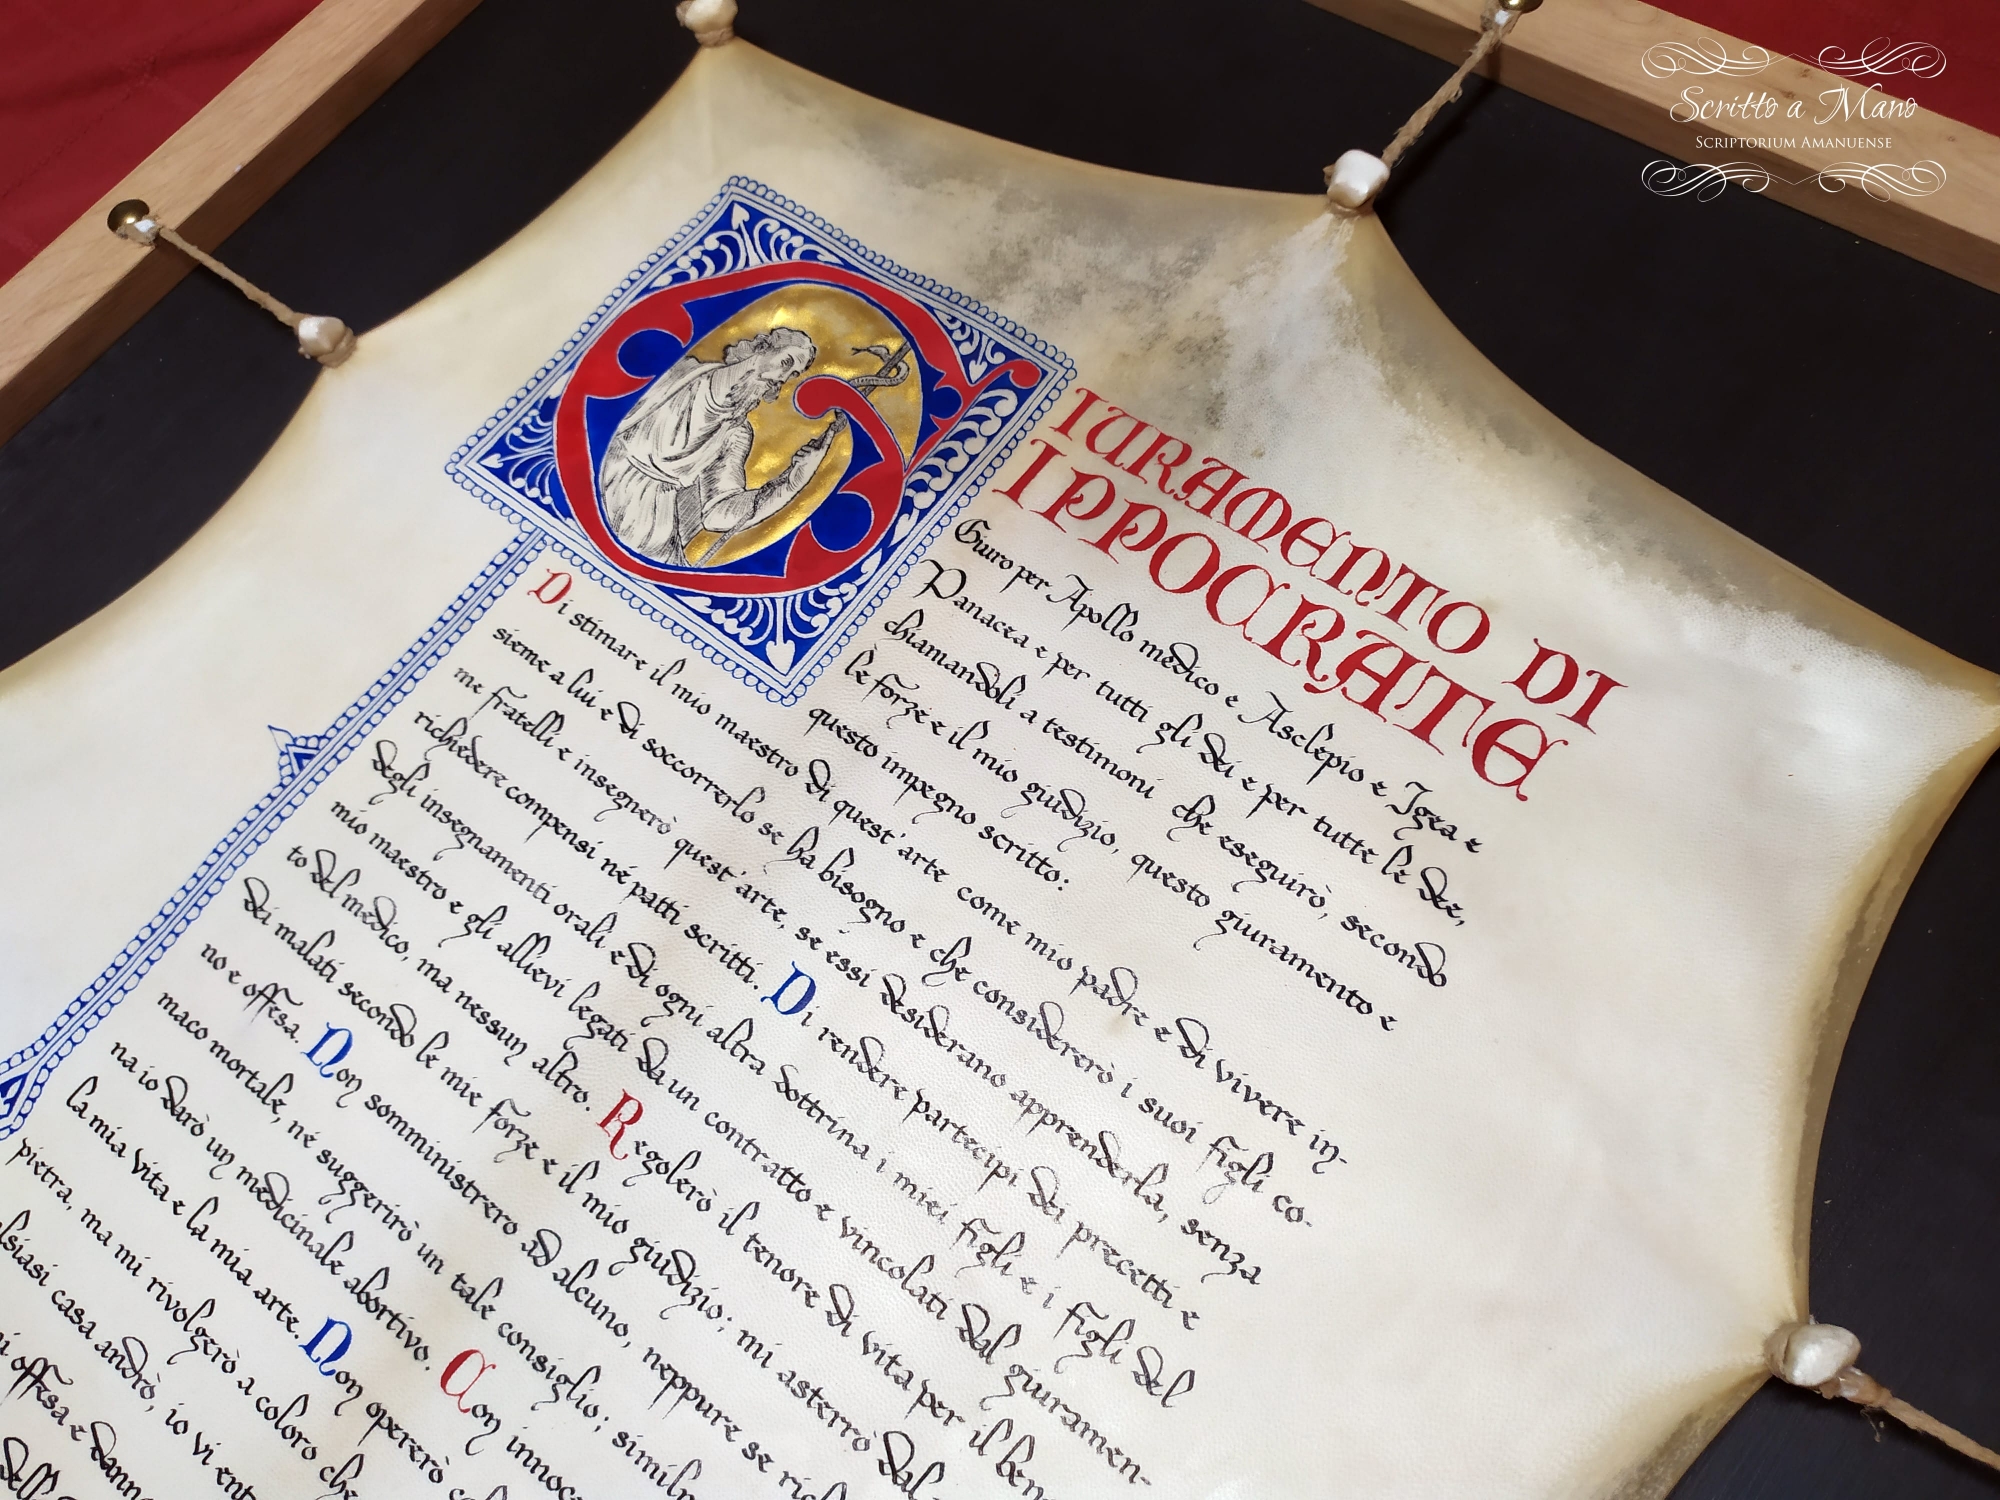 Scritto a Mano
SCRIPTORIUM AMANUENSE
GIURAMENTO DI
IPPOCRATE
Giuro per Apollo medico e Asclepio e Igea e
Panacea e per tutti gli dei e per tutte le dee,
chiamandoli a testimoni che eseguirò, secondo
le forze e il mio giudizio, questo giuramento e
questo impegno scritto:
Di stimare il mio maestro di quest'arte come mio padre e di vivere in-
sieme a lui e di soccorrerlo se ha bisogno e che considererò i suoi figli co-
me fratelli e insegnerò quest'arte, se essi desiderano apprenderla, senza
richiedere compensi né patti scritti. Di rendere partecipi dei precetti e
degli insegnamenti orali e di ogni altra dottrina i miei figli e i figli del
mio maestro e gli allievi legati da un contratto e vincolati dal giuramen-
to del medico, ma nessun altro. Regolerò il tenore di vita per il ben
dei malati secondo le mie forze e il mio giudizio; mi asterrò dal
no e offesa. Non somministrerò ad alcuno, neppure se ric
maco mortale, né suggerirò un tale consiglio; similm
na io darò un medicinale abortivo. Con innoc
la mia vita e la mia arte. Non opererò co
pietra, ma mi rivolgerò a coloro che
lsiasi casa andrò, io vi ent
offesa e danno
dell